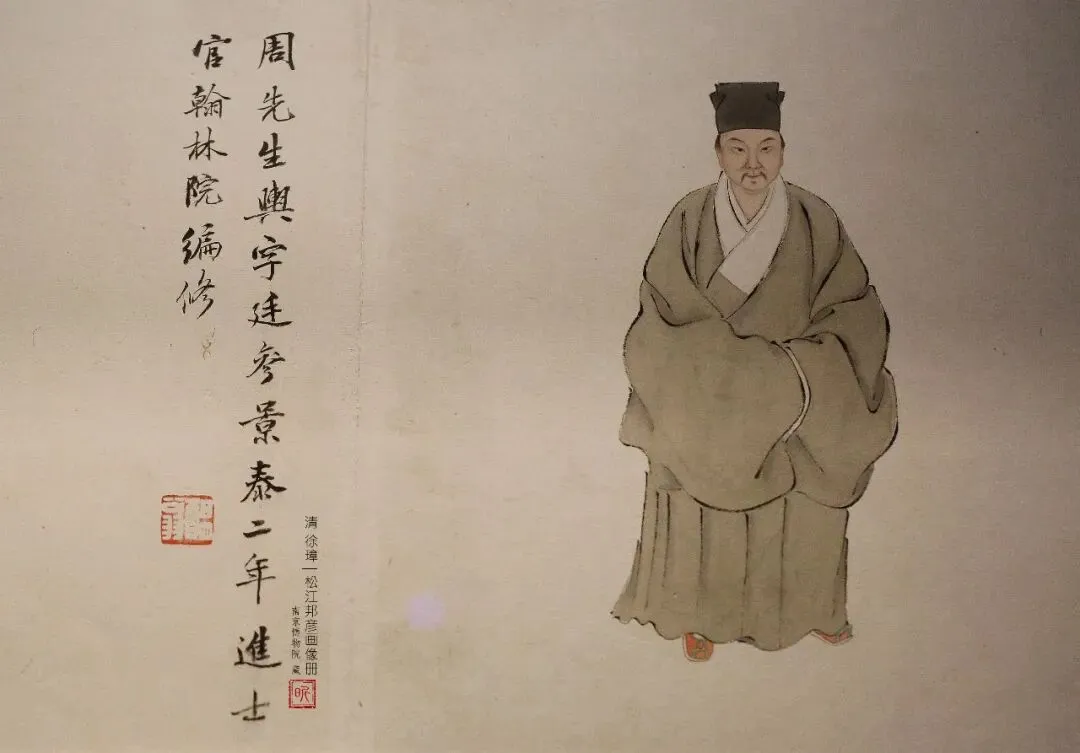 周先生輿字廷參景泰二年進士
官翰林院編修
清 徐璋|松江邦彦画像册
南京博物院 藏
昵